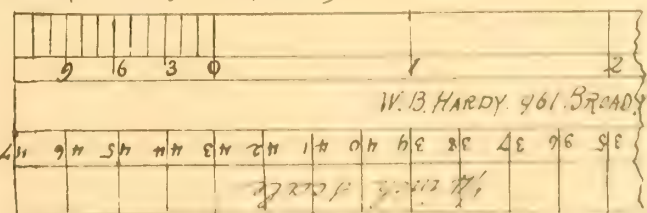 9 6 3 0 1 2
W.B. HARDY. 961. BROAD
47 46 45 44 43 42 41 40 39 38 37 36 35